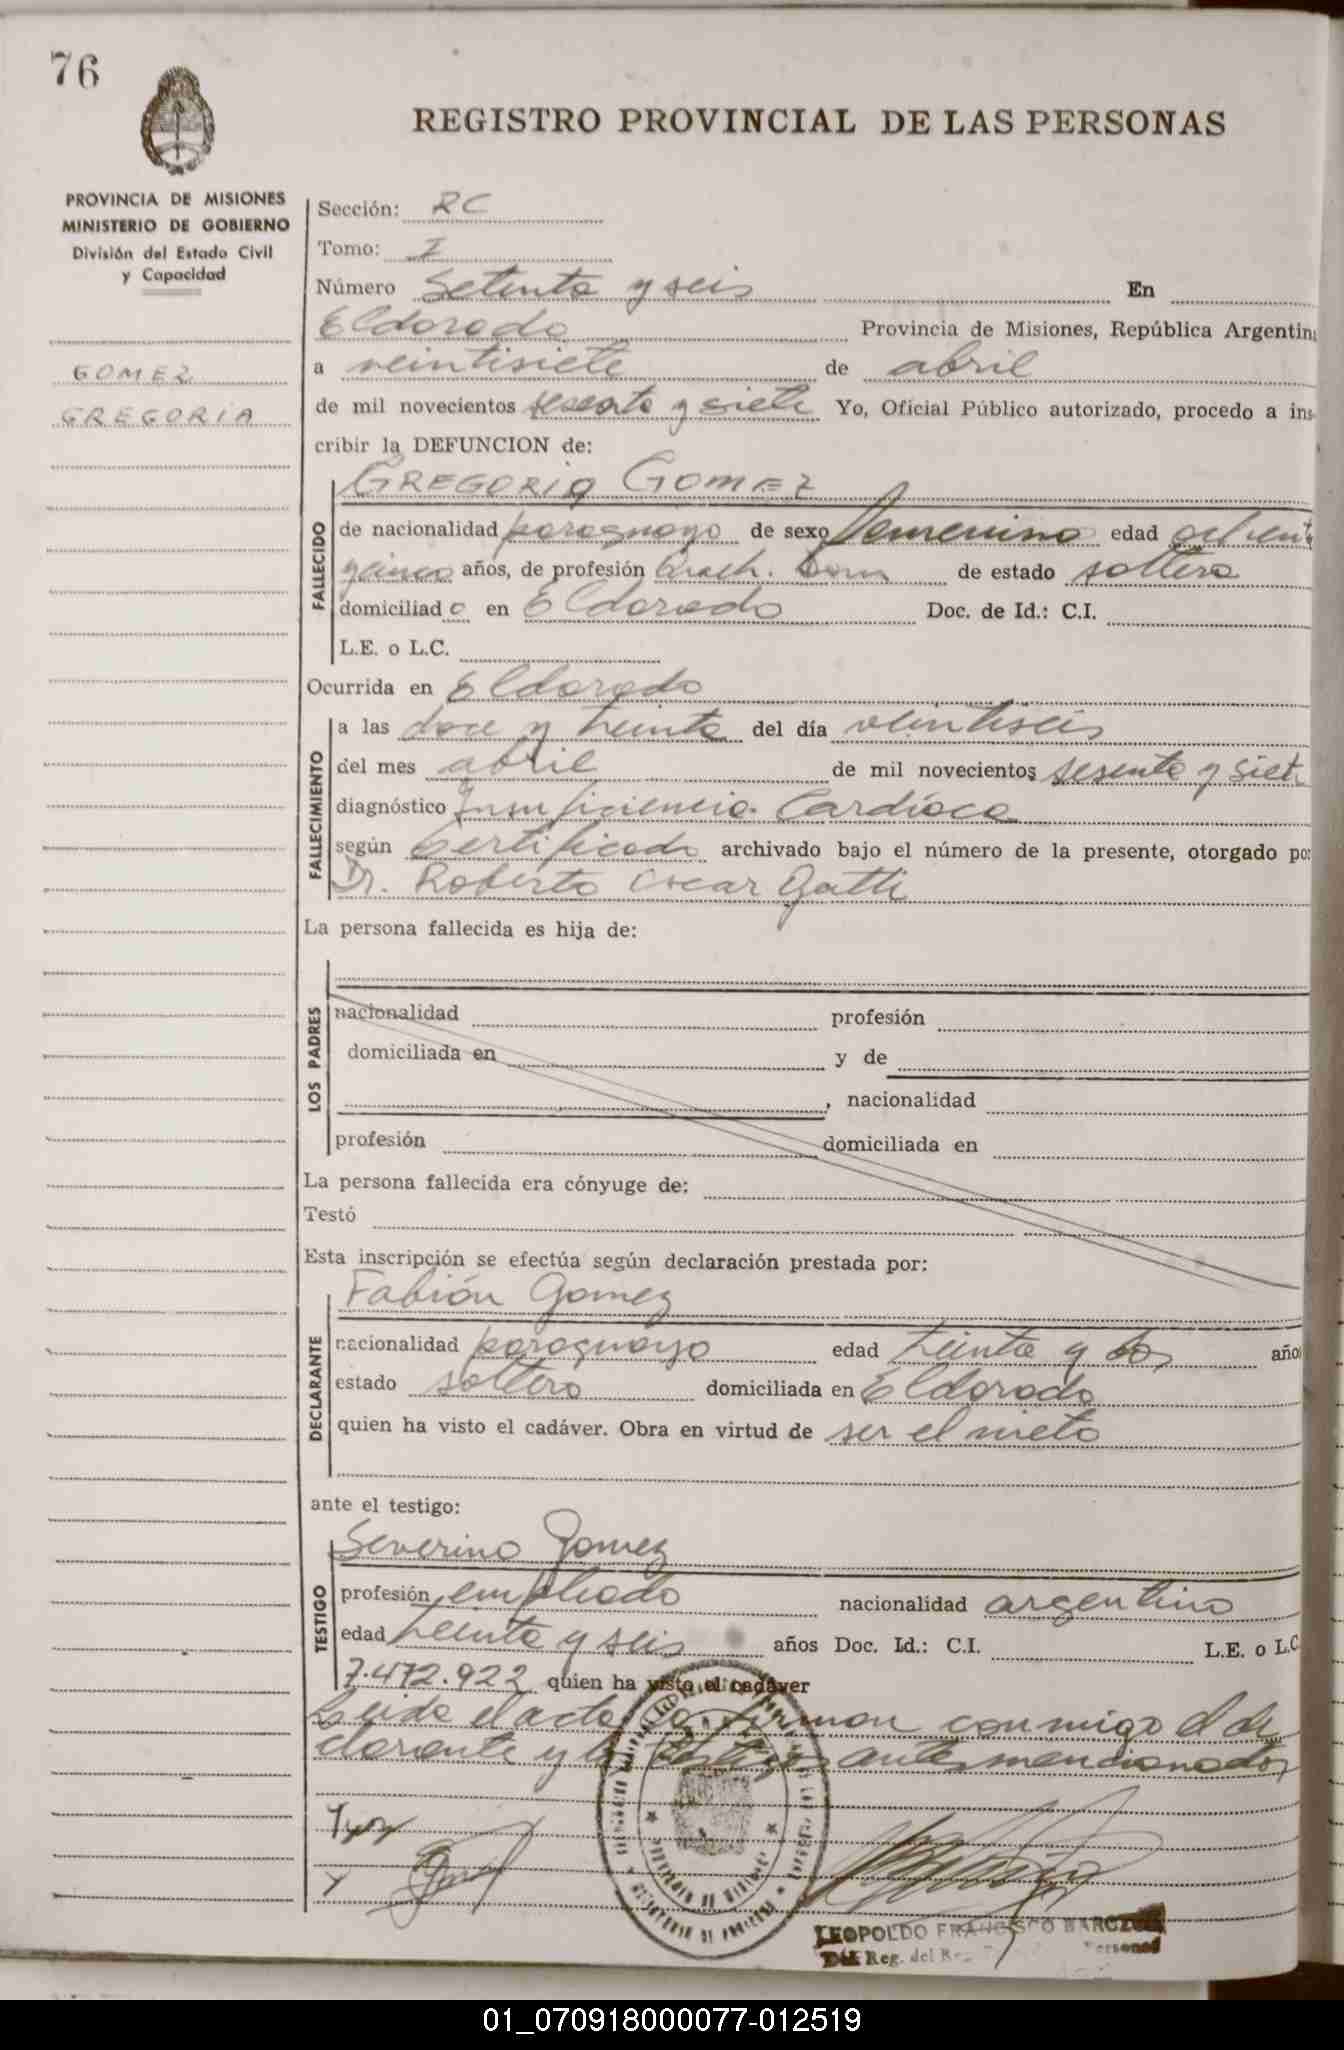 76
REGISTRO PROVINCIAL DE LAS PERSONAS
PROVINCIA DE MISIONES
MINISTERIO DE GOBIERNO
División del Estado Civil
y Capacidad
GOMEZ
GREGORIA
Sección: RC
Tomo: I
Número Setenta y seis En
Eldorado Provincia de Misiones, República Argentin
a veintisiete de abril
de mil novecientos sesenta y siete Yo, Oficial Público autorizado, procedo a ins-
cribir la DEFUNCION de:
FALLECIDO
GREGORIA GOMEZ
de nacionalidad paraguaya de sexo femenino edad ochenta
y cinco años, de profesión de estado soltera
domiciliad o en Eldorado Doc. de Id.: C.I.
L.E. o L.C.
Ocurrida en Eldorado
FALLECIMIENTO
a las doce y treinta del día veintiseis
del mes abril de mil novecientos sesenta y siete
diagnóstico Insuficiencia Cardíaca
según Certificado archivado bajo el número de la presente, otorgado por
Dr. Roberto Oscar Gatti
La persona fallecida es hija de:
LOS PADRES
nacionalidad profesión
domiciliada en y de
, nacionalidad
profesión domiciliada en
La persona fallecida era cónyuge de:
Testó
Esta inscripción se efectúa según declaración prestada por:
DECLARANTE
Fabián Gomez
nacionalidad paraguayo edad treinta y dos año
estado soltero domiciliada en Eldorado
quien ha visto el cadáver. Obra en virtud de ser el nieto
ante el testigo:
TESTIGO
Severino Gomez
profesión empleado nacionalidad argentino
edad treinta y seis años Doc. Id.: C.I. L.E. o L.C
7.472.922 quien ha visto el cadáver
Leida el acta la firman conmigo el de
clarante y testigo antes mencionados
LEOPOLDO FRANCISCO
Reg. del
01_070918000077-012519